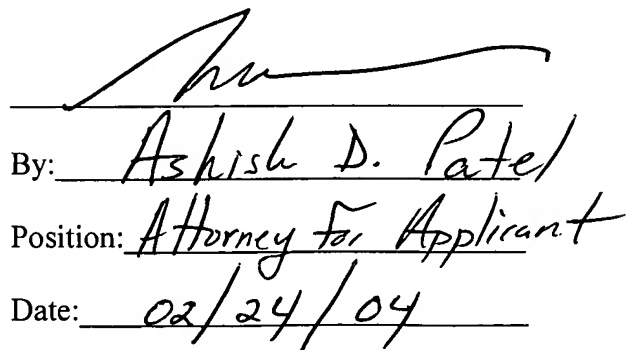 By: Ashish D. Patel
Position: Attorney for Applicant
Date: 02/24/04